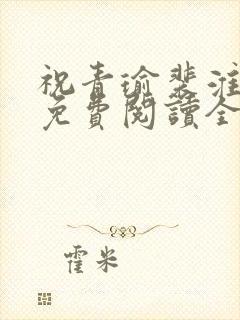 祝青瑜裴淮
免費閱讀全
霍米